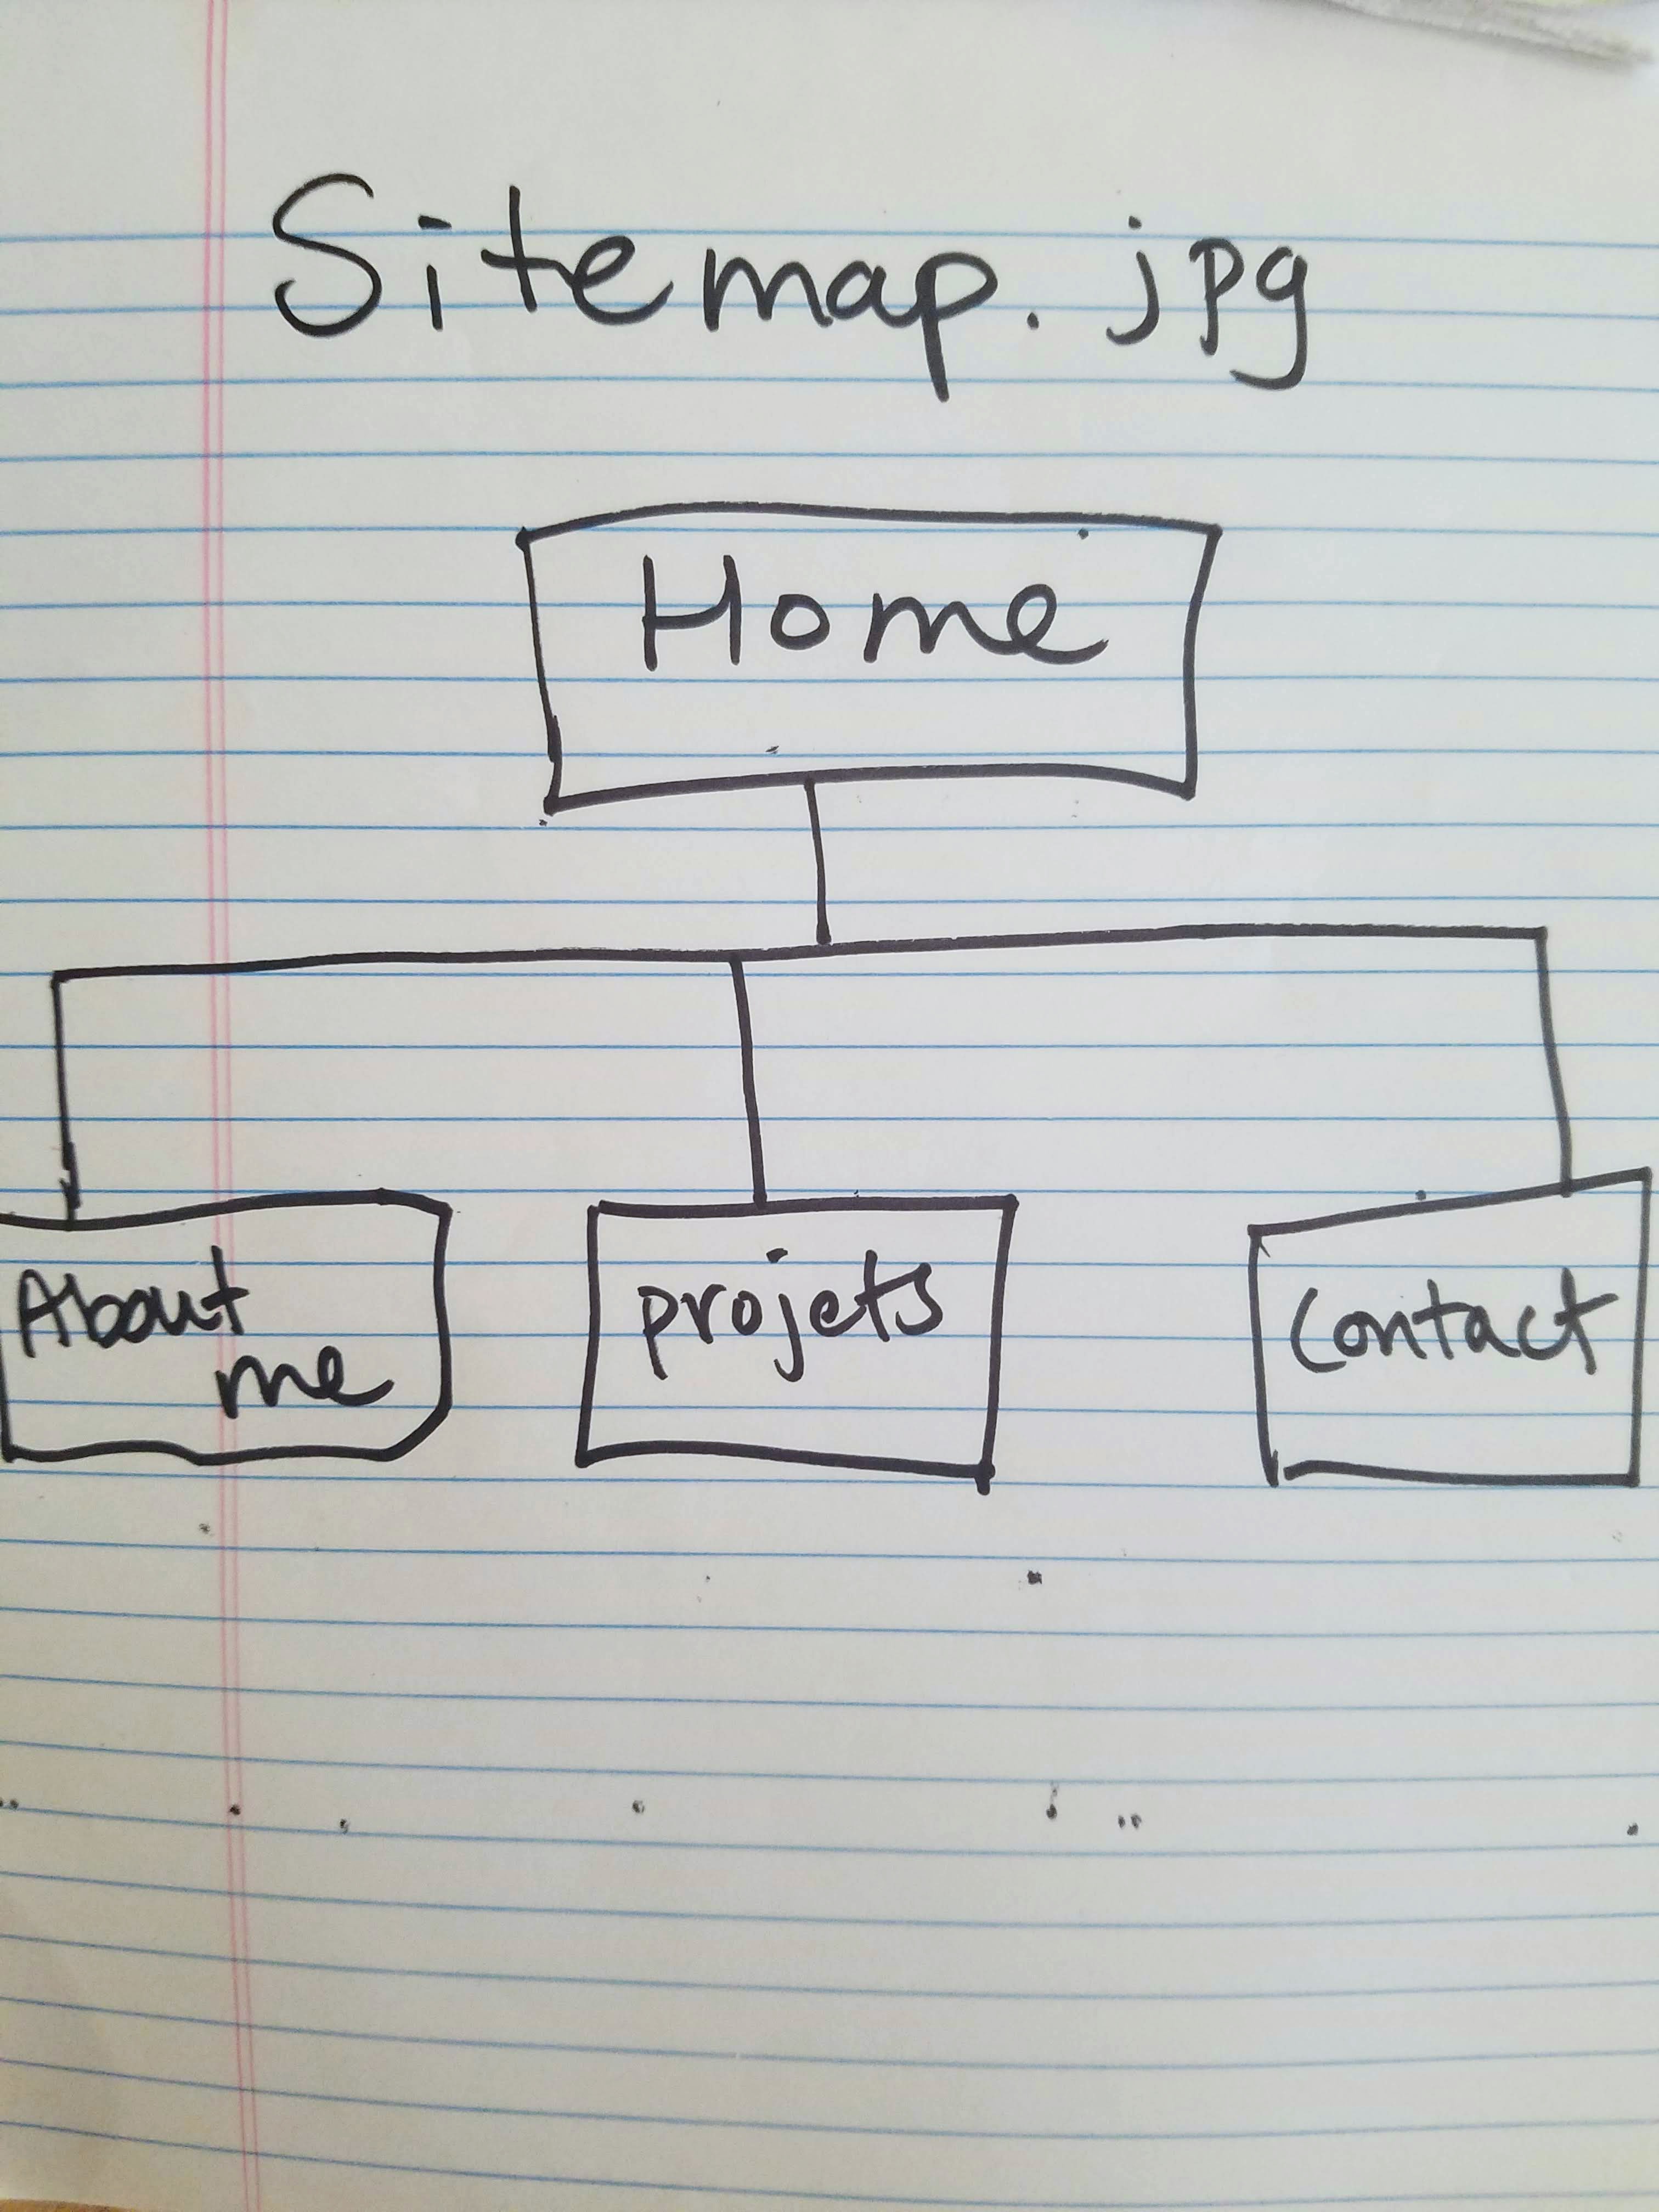 Sitemap.jpg
Home
About
me
projets
Contact